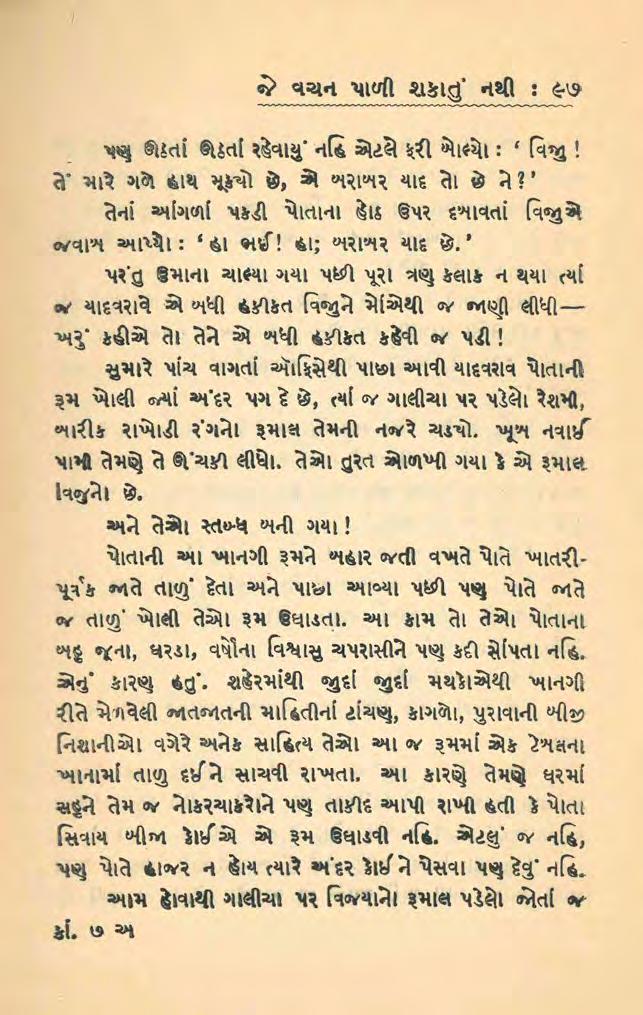 જે વચન પાળી શકાતું નથી : ૯૭
પણ ઊઠતાં ઊઠતાં રહેવાયું નહિ એટલે ફરી બોલ્યો : ‘ વિજુ !
તેં મારે ગળે હાથ મૂક્યો છે, એ બરાબર યાદ તો છે ને?’
તેનાં આંગળાં પકડી પોતાના હોઠ ઉપર દબાવતાં વિજુએ
જવાબ આપ્યો : ‘હા ભઈ! હા; બરાબર યાદ છે.’
પરંતુ ઉમાના ચાલ્યા ગયા પછી પૂરા ત્રણ કલાક ન થયા ત્યાં
જ યાદવરાવે એ બધી હકીકત વિજુને મોંએથી જ જાણી લીધી—
ખરું કહીએ તો તેને એ બધી હકીકત કહેવી જ પડી !
સુમારે પાંચ વાગતાં ઑફિસેથી પાછા આવી યાદવરાવ પોતાની
રૂમ ખોલી જ્યાં અંદર પગ દે છે, ત્યાં જ ગાલીચા પર પડેલો રેશમી,
બારીક રાખોડી રંગનો રૂમાલ તેમની નજરે ચડ્યો. ખૂબ નવાઈ
પામી તેમણે તે ઊંચકી લીધો. તેઓ તુરત ઓળખી ગયા કે એ રૂમાલ
વિજુનો છે.
અને તેઓ સ્તબ્ધ બની ગયા !
પોતાની આ ખાનગી રૂમને બહાર જતી વખતે પોતે ખાતરી-
પૂર્વક જાતે તાળું દેતા અને પાછા આવ્યા પછી પણ પોતે જાતે
જ તાળું ખોલી તેઓ રૂમ ઉઘાડતા. આ કામ તો તેઓ પોતાના
બહુ જૂના, ઘરડા, વર્ષોના વિશ્વાસુ ચપરાસીને પણ કદી સોંપતા નહિ.
એનું કારણ હતું. શહેરમાંથી જુદાં જુદાં મથકોએથી ખાનગી
રીતે મેળવેલી જાતજાતની માહિતીનાં ટાંચણ, કાગળો, પુરાવાની બીજી
નિશાનીઓ વગેરે અનેક સાહિત્ય તેઓ આ જ રૂમમાં એક ટેબલના
ખાનામાં તાળુ દઈને સાચવી રાખતા. આ કારણે તેમણે ઘરમાં
સહુને તેમ જ નોકરચાકરોને પણ તાકીદ આપી રાખી હતી કે પોતા
સિવાય બીજા કોઈએ એ રૂમ ઉઘાડવી નહિ. એટલું જ નહિ,
પણ પોતે હાજર ન હોય ત્યારે અંદર કોઈને પેસવા પણ દેવું નહિ.
આમ હોવાથી ગાલીચા પર વિજયાનો રૂમાલ પડેલો જોતાં જ
કાં. ૭ અ